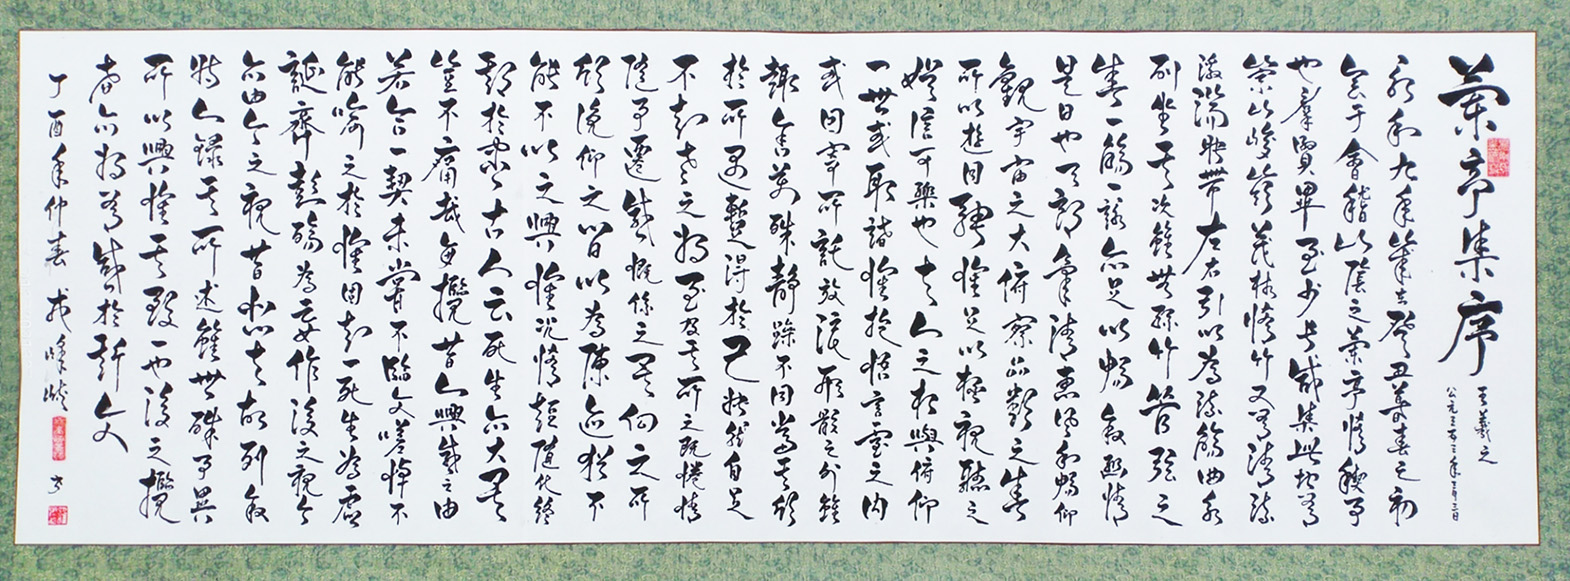 蘭亭集序
王羲之
公元三五三年三月三日
永和九年歲在癸丑暮春之初
會于會稽山陰之蘭亭脩稧事
也羣賢畢至少長咸集此地有
崇山峻嶺茂林脩竹又有清流
激湍映帶左右引以為流觴曲水
列坐其次雖無絲竹管弦之
盛一觴一詠亦足以暢敘幽情
是日也天朗氣清惠風和暢仰
觀宇宙之大俯察品類之盛
所以遊目騁懷足以極視聽之
娛信可樂也夫人之相與俯仰
一世或取諸懷抱悟言一室之内
或因寄所託放浪形骸之外雖
趣舍萬殊靜躁不同當其欣
於所遇暫得於己快然自足
不知老之將至及其所之既惓情
隨事遷感慨係之矣向之所
欣俛仰之間以為陳迹猶不
能不以之興懷況脩短隨化終
期於盡古人云死生亦大矣
豈不痛哉每攬昔人興感之由
若合一契未嘗不臨文嗟悼不
能喻之於懷固知一死生為虛
誕齊彭殤為妄作後之視今
亦由今之視昔悲夫故列敘
時人錄其所述雖世殊事異
所以興懷其致一也後之攬
者亦將有感於斯文
丁酉年仲春